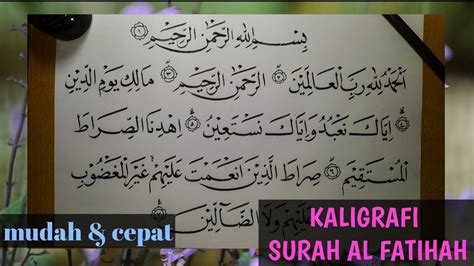 بِسْمِ اللهِ الرَّحْمٰنِ الرَّحِيْمِ ١
اَلْحَمْدُ لِلّٰهِ رَبِّ الْعَالَمِيْنَ ٢ الرَّحْمٰنِ الرَّحِيْمِ ٣ مَالِكِ يَوْمِ الدِّيْنِ
٤ اِيَّاكَ نَعْبُدُ وَاِيَّاكَ نَسْتَعِيْنُ ٥ اِهْدِنَا الصِّرَاطَ
الْمُسْتَقِيْمَ ٦ صِرَاطَ الَّذِيْنَ اَنْعَمْتَ عَلَيْهِمْ غَيْرِ الْمَغْضُوْبِ
عَلَيْهِمْ وَلَا الضَّالِّيْنَ
mudah & cepat
KALIGRAFI
SURAH AL FATIHAH